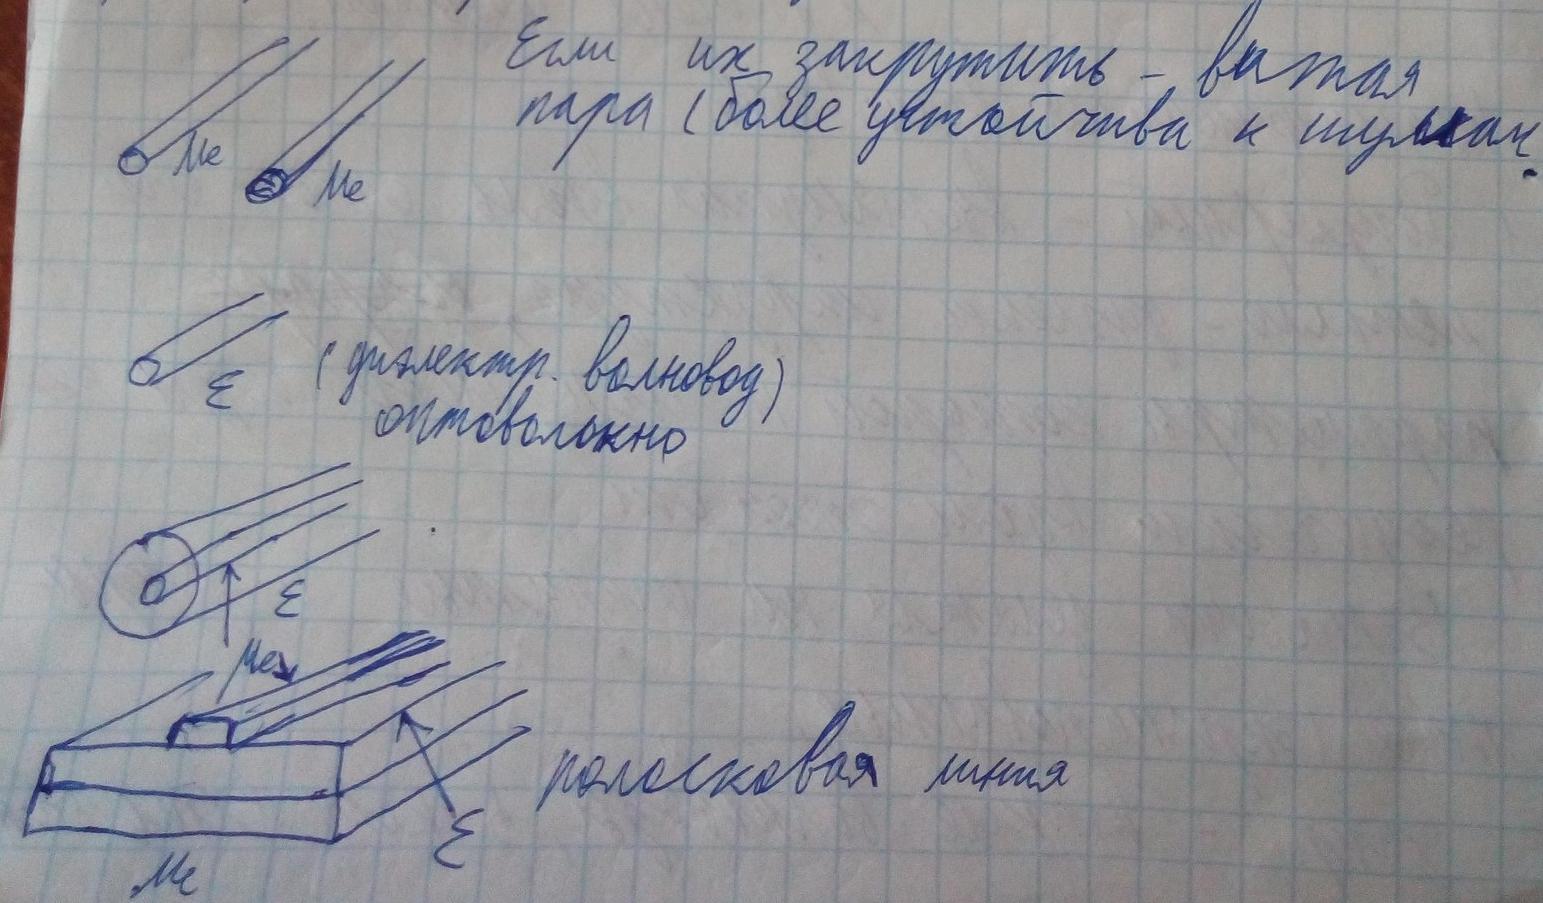 Если их закрутить - витая
пара (более устойчива к шумам.
Ме
Ме
ε (диэлектр. волновод)
оптоволокно
ε
Ме
полосковая линия
ε
Ме